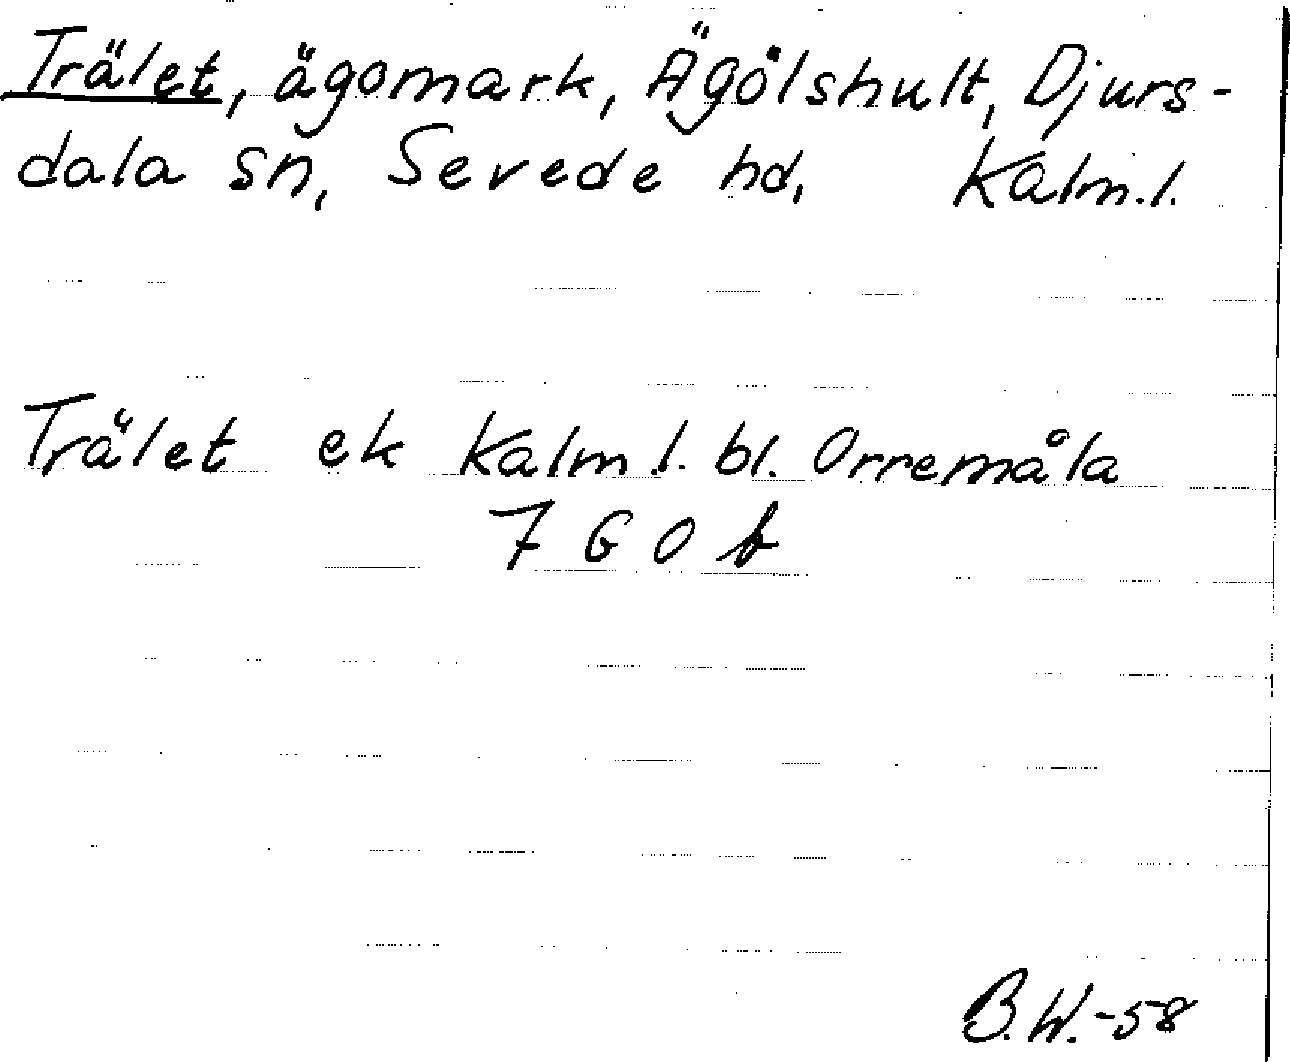 Trälet, ägomark, Ägölshult, Djurs-
dala sn, Sevede hd, Kalm.l.
Trälet ek Kalm.l. bl. Orremåla
7 G O f
B.W.-58